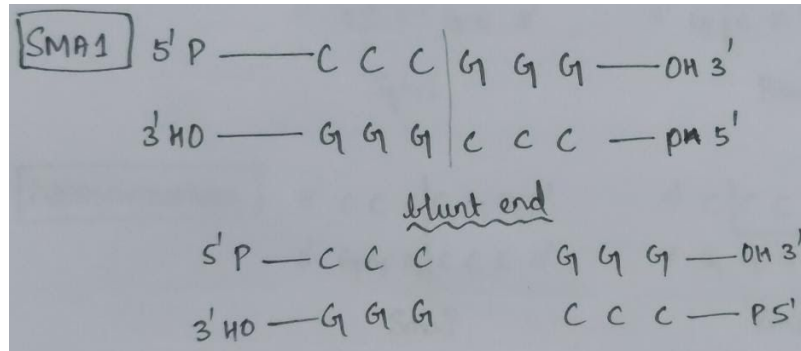 SMA1 5' P — C C C | G G G — OH 3'
3' HO — G G G | C C C — P 5'
blunt end
5' P — C C C G G G — OH 3'
3' HO — G G G C C C — P 5'